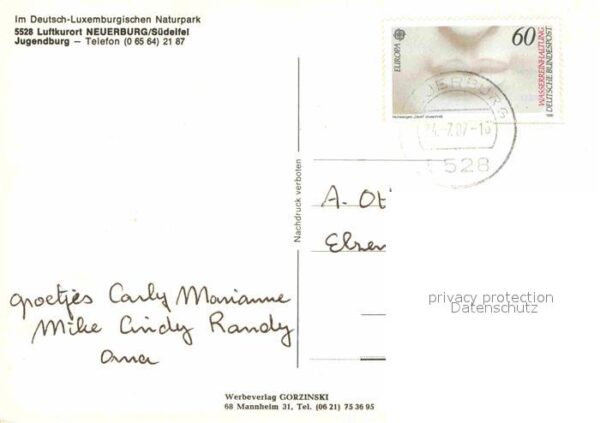 Im Deutsch-Luxemburgischen Naturpark
5528 Luftkurort NEUERBURG/Südeifel
Jugendburg — Telefon (0 65 64) 21 87
EUROPA
60
WASSERREINHALTUNG
DEUTSCHE BUNDESPOST
UERBURG
24.-7.87-16
5528
Nachdruck verboten
A. Ot
Elzen
groetjes Carly Marianne
Mike Cindy Randy
oma
privacy protection
Datenschutz
Werbeverlag GORZINSKI
68 Mannheim 31, Tel. (06 21) 75 36 95